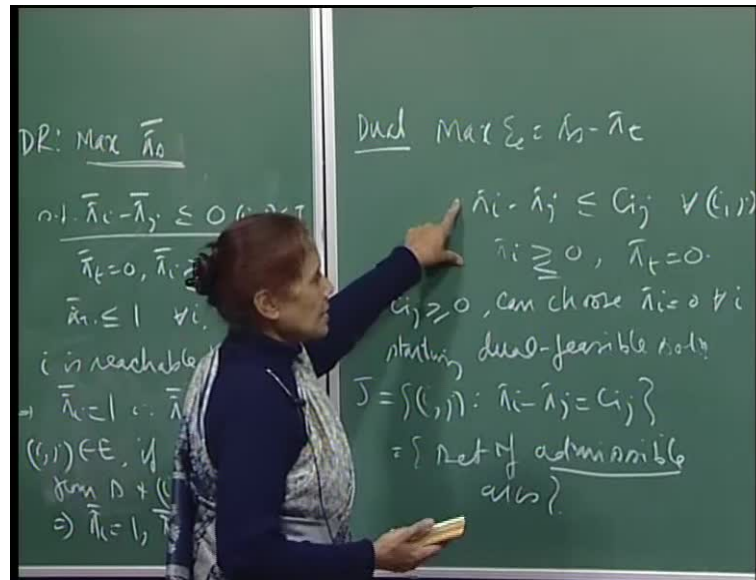 DR: Max π̄s
s.t. π̄i - π̄j ≤ 0 (i,j) ∈ J
π̄t = 0, π̄i
≤ 1 ∀i,
i is reachable
⇒ π̄i = 1
(i,j) ∈ E, if
from s
⇒ π̄i = 1,
Dual Max = πs - πt
πi - πj ≤ Cij ∀(i,j)
πi ≷ 0, πt = 0.
Cij ≥ 0, can choose πi = 0 ∀i
starting dual-feasible soln
J = {(i,j): πi - πj = Cij}
= { set of admissible
arcs}.